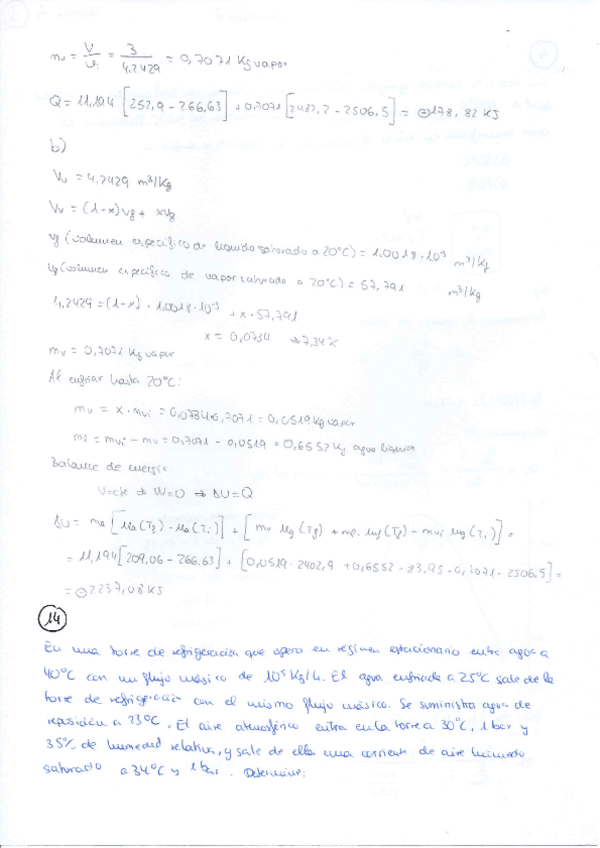 mv = V/vi = 3/4,2429 = 0,7071 Kg vapor
Q = 11,194 [252,9 - 266,63] + 0,7071 [2487,2 - 2506,5] = ⊖178,82 KJ
b)
Vv = 4,2429 m³/Kg
Vv = (1-x)vf + xvg
vf (volumen específico de líquido saturado a 20°C) = 1,0018·10⁻³ m³/Kg
vg (volumen específico de vapor saturado a 20°C) = 57,791 m³/Kg
4,2429 = (1-x) · 1,0018·10⁻³ + x · 57,791
x = 0,0734 → 7,34%
mv = 0,7071 Kg vapor
Al enfriar hasta 20°C:
mv = x · mvi = 0,0734·0,7071 = 0,0519 Kg vapor
ml = mvi - mv = 0,7071 - 0,0519 = 0,6552 Kg agua líquida
Balance de energía
V=cte ⇒ W=0 ⇒ ΔU=Q
ΔU = ma [ua(Tf) - ua(Ti)] + [mv ug(Tf) + ml · uf(Tf) - mvi ug(Ti)] =
= 11,194 [209,06 - 266,63] + [0,0519 · 2402,9 + 0,6552 · 83,95 - 0,7071 · 2506,5] =
= ⊖2237,08 KJ
14
En una torre de refrigeración que opera en régimen estacionario entra agua a
40°C con un flujo másico de 10⁵ Kg/h. El agua enfriada a 25°C sale de la
torre de refrigeración con el mismo flujo másico. Se suministra agua de
reposición a 23°C. El aire atmosférico entra en la torre a 30°C, 1 bar y
35% de humedad relativa, y sale de ella una corriente de aire húmedo
saturado a 34°C y 1 bar. Determine: